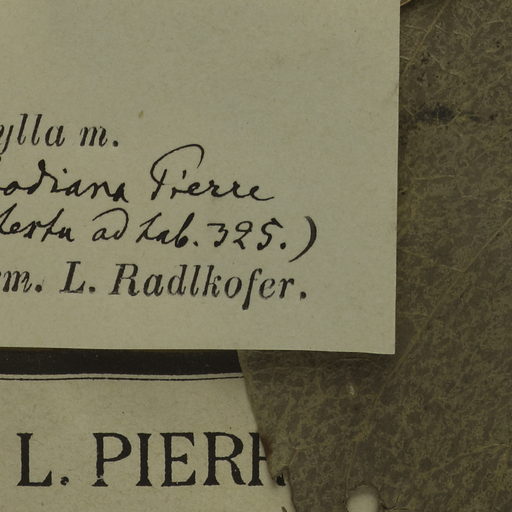 ylla m.
odiana Pierre
textu ad tab. 325.)
m. L. Radlkofer.
L. PIERR